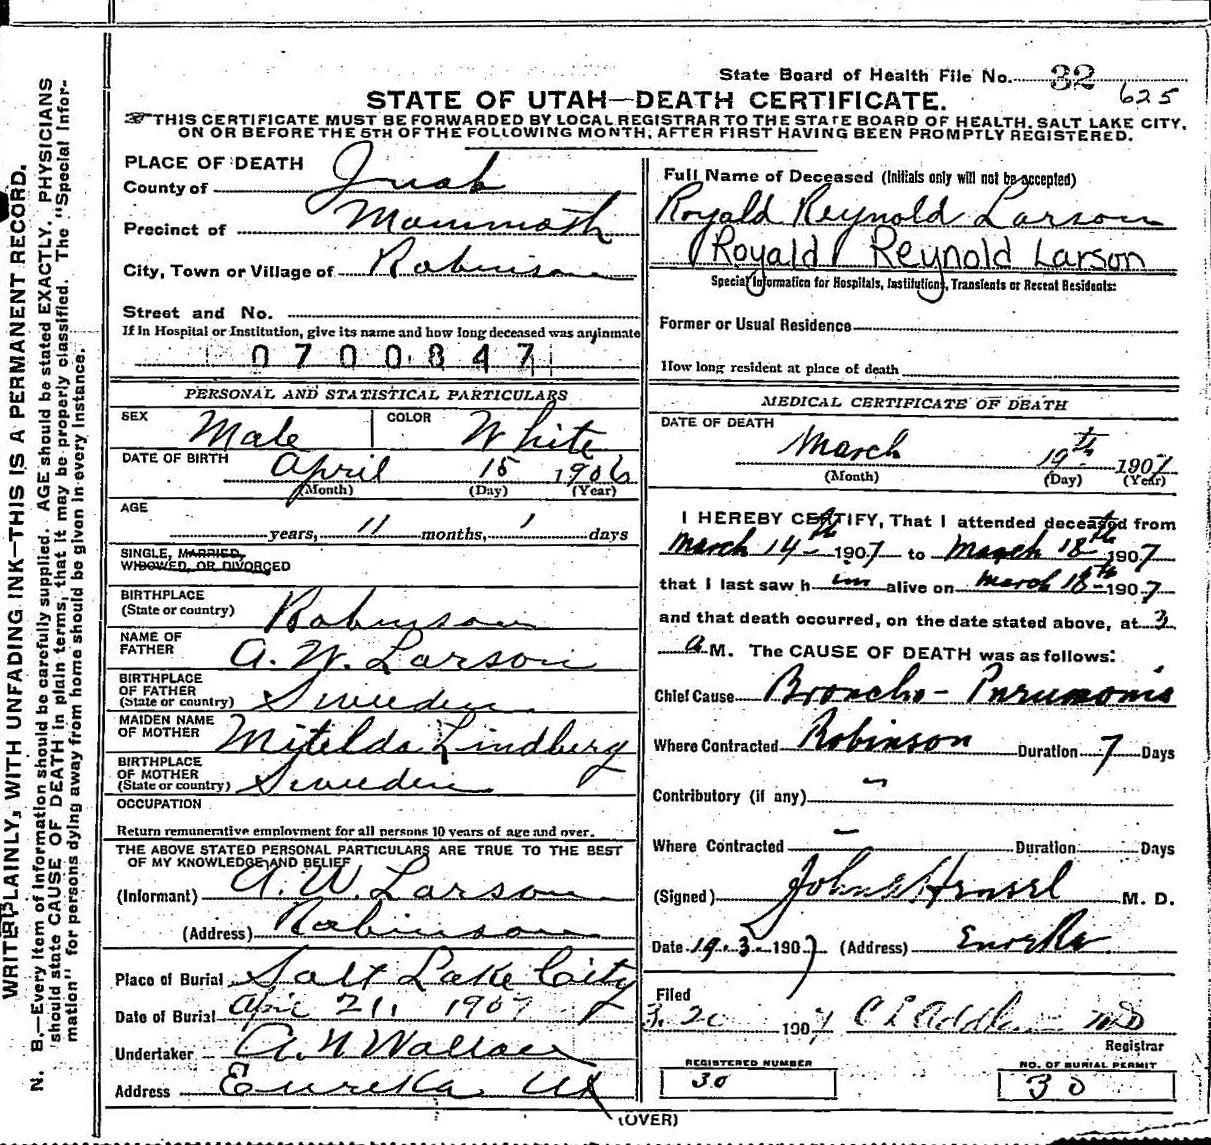 State Board of Health File No. 32
625
STATE OF UTAH—DEATH CERTIFICATE.
THIS CERTIFICATE MUST BE FORWARDED BY LOCAL REGISTRAR TO THE STATE BOARD OF HEALTH, SALT LAKE CITY,
ON OR BEFORE THE 5TH OF THE FOLLOWING MONTH, AFTER FIRST HAVING BEEN PROMPTLY REGISTERED.
WRITE PLAINLY, WITH UNFADING INK—THIS IS A PERMANENT RECORD.
N. B.—Every item of information should be carefully supplied. AGE should be stated EXACTLY. PHYSICIANS
should state CAUSE OF DEATH in plain terms, that it may be properly classified. The "Special Infor-
mation" for persons dying away from home should be given in every instance.
PLACE OF DEATH
County of Juab
Precinct of Mammoth
City, Town or Village of Robinson
Street and No.
If in Hospital or Institution, give its name and how long deceased was an inmate
0700847
PERSONAL AND STATISTICAL PARTICULARS
SEX Male COLOR White
DATE OF BIRTH April 18 1906
(Month) (Day) (Year)
AGE
years, 11 months, 1 days
SINGLE, MARRIED,
WIDOWED, OR DIVORCED
BIRTHPLACE
(State or country) Robinson
NAME OF
FATHER A. W. Larson
BIRTHPLACE
OF FATHER
(State or country) Sweeden
MAIDEN NAME
OF MOTHER Mitelda Lindberg
BIRTHPLACE
OF MOTHER
(State or country) Sweeden
OCCUPATION
Return remunerative employment for all persons 10 years of age and over.
THE ABOVE STATED PERSONAL PARTICULARS ARE TRUE TO THE BEST
OF MY KNOWLEDGE AND BELIEF
(Informant) A. W. Larson
(Address) Robinson
Place of Burial Salt Lake City
Date of Burial Apr 21, 1907
Undertaker A. N Wallace
Address Eureka Ut
Full Name of Deceased (Initials only will not be accepted)
Royald Reynold Larson
Royald Reynold Larson
Special Information for Hospitals, Institutions, Transients or Recent Residents:
Former or Usual Residence
How long resident at place of death
MEDICAL CERTIFICATE OF DEATH
DATE OF DEATH
March 19th 1907
(Month) (Day) (Year)
I HEREBY CERTIFY, That I attended deceased from
March 14th 1907 to March 18th 1907
that I last saw h im alive on March 18th 1907
and that death occurred, on the date stated above, at 3
a M. The CAUSE OF DEATH was as follows:
Chief Cause Broncho-Pneumonia
Where Contracted Robinson Duration 7 Days
Contributory (if any) –
Where Contracted – Duration Days
(Signed) John Hensel M. D.
Date 19.3. 1907 (Address) Eureka
Filed
3.20 1907 C E
Registrar
REGISTERED NUMBER
30
NO. OF BURIAL PERMIT
30
(OVER)